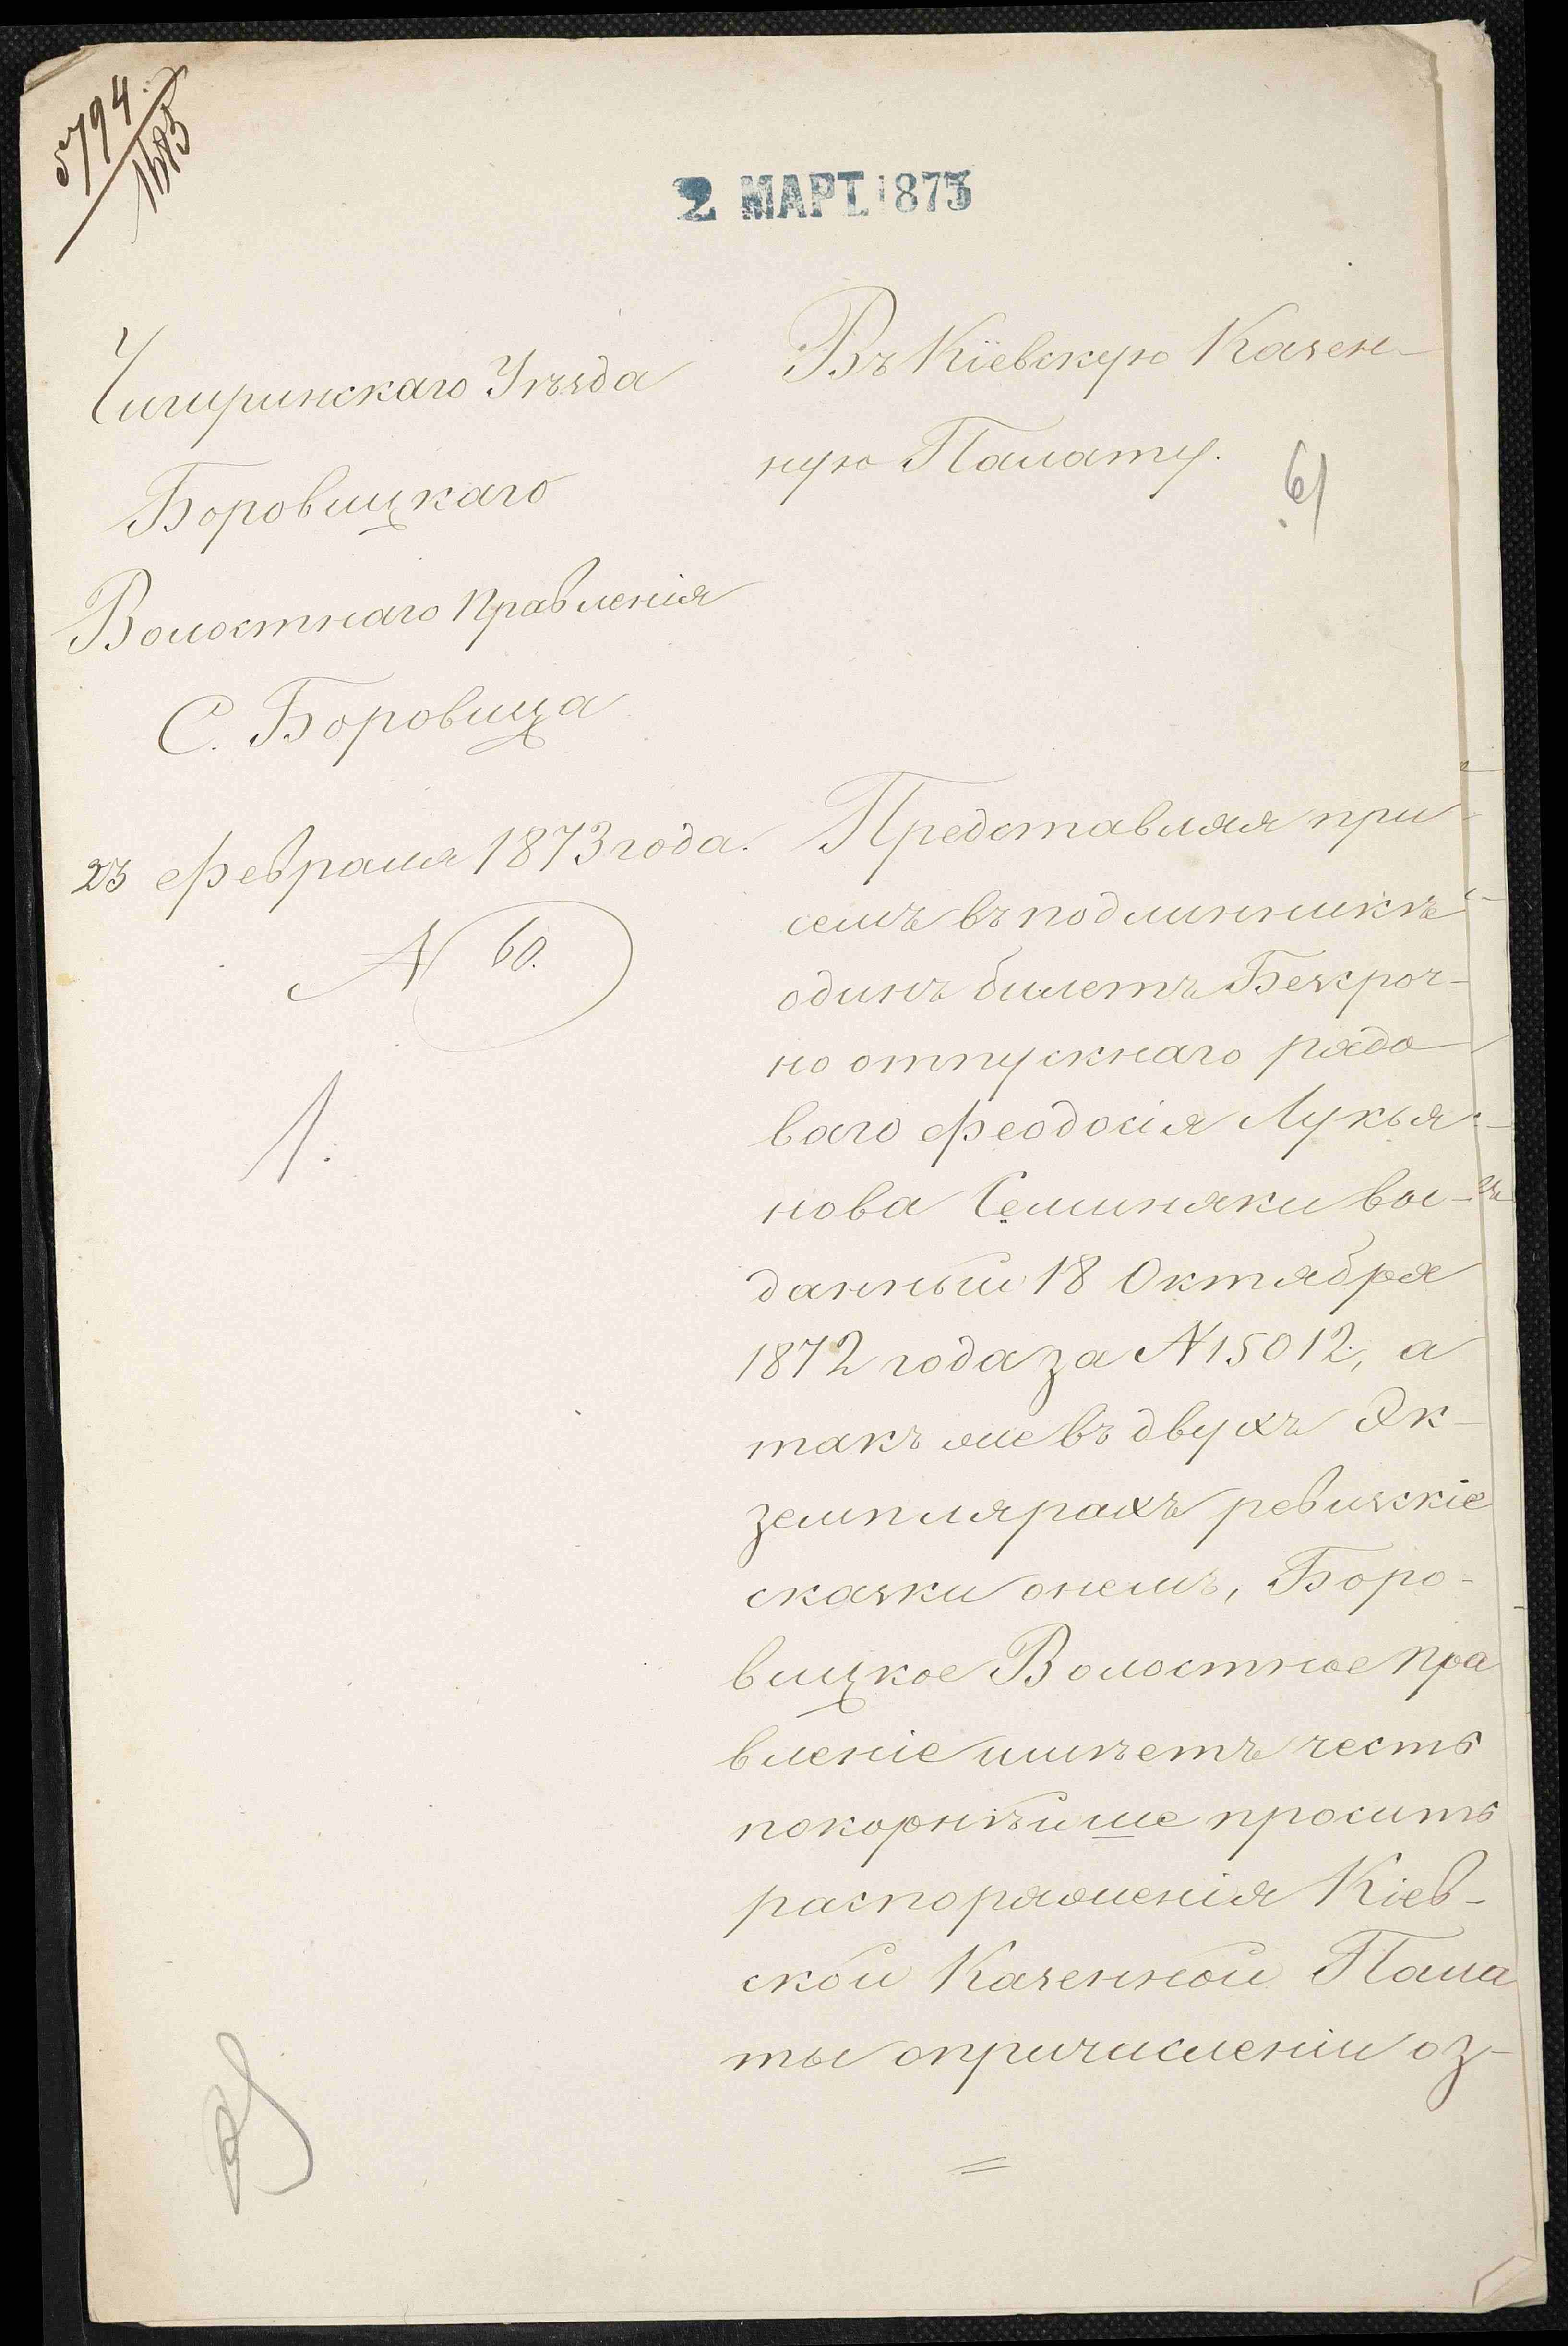 5794
1873
2 МАРТ. 1873
Чигиринскаго Уѣзда
Боровицкаго
Волостнаго Правленія
С. Боровица
23 февраля 1873 года.
№ 60.
1.
Въ Кіевскую Казен-
ную Палату.
Представляя при
семъ въ подлинникѣ
одинъ билетъ Безсроч-
но отпускнаго рядо
ваго Феодосія Лукья-
нова Семиняки вы-
данный 18 Октября
1872 года за № 15012, а
такъ же въ двухъ Эк-
земплярахъ ревизскіе
сказки онемъ, Боро-
вицкое Волостное Пра
вленіе имѣетъ честь
покорнѣйше просить
распоряженія Кіев-
ской Казенной Пала
ты опричисленіи оз-